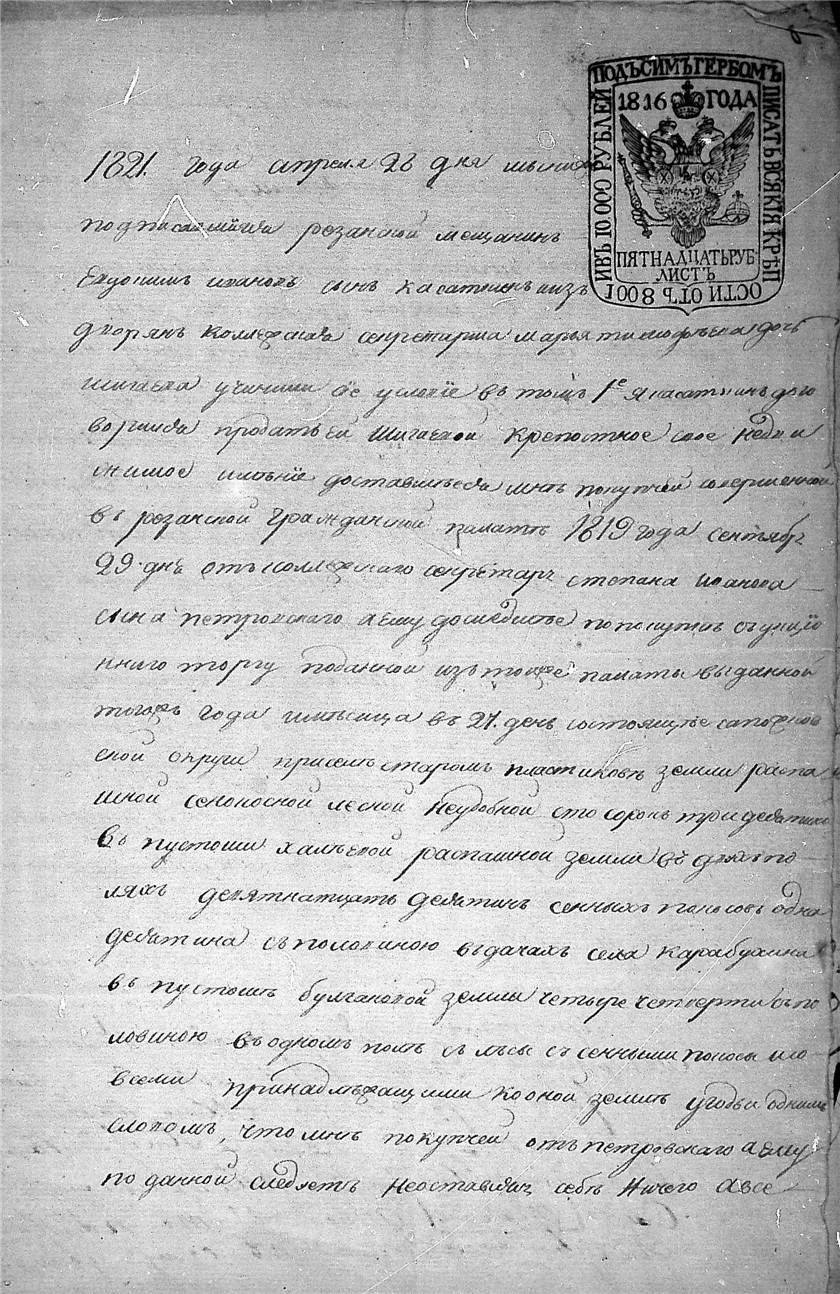 ПОДЪ СИМЪ ГЕРБОМЪ
ПИСАТЬ ВСЯКІЯ КРѢП
ОСТИ ОТЪ 8001
ИВЪ 10.000 РУБЛЕЙ
1816 ГОДА
ПЯТНАДЦАТЬ РУБ:
ЛИСТЪ
1821. года апреля 28 дня мы
подписавшіися резанской мещанинъ
ивановъ сынъ касаткинъ изъ
дворянъ Коллежская секретарша марья тимофѣева дочь
шигаева учинили сіе условіе втомъ 1е я касаткинъ дого
ворился продать ей Шигаевой Крепостное свое Недви
жимое имѣніе доставшѣеся мнѣ покупчей совершенной
въ резанской Гражданской палатѣ 1819 года сентябр
29 дня отъ коллежскаго секретар степана иванова
сына петровскаго аему дошедшѣе попокупкѣ съ укціо
ннаго торгу поданной изъ тойже палаты выданной
тогожъ года имѣсяца въ 27. день состоящѣе сапожков
ской округи присѣле старомъ пластиковѣ земли распа
шной сенокосной лесной Неудобной сто сорокъ три десятины
въ пустоши халѣевой распашной земли въ двухъ по
ляхъ девятнатцать десятинъ сенныхъ покосовъ одна
десятина съ половиною въ дачахъ села Карабухина
въ пустошѣ булгаковой земли четыре четверти съ по
ловиною въ одномъ полѣ съ лѣсы съ сенными покосы исо
всеми принадлѣжащими Ко оной землѣ угодьи однимъ
словомъ, что мнѣ покупчей отъ петровскаго аему
по данной следуетъ Неоставляя себѣ Ничего авсе